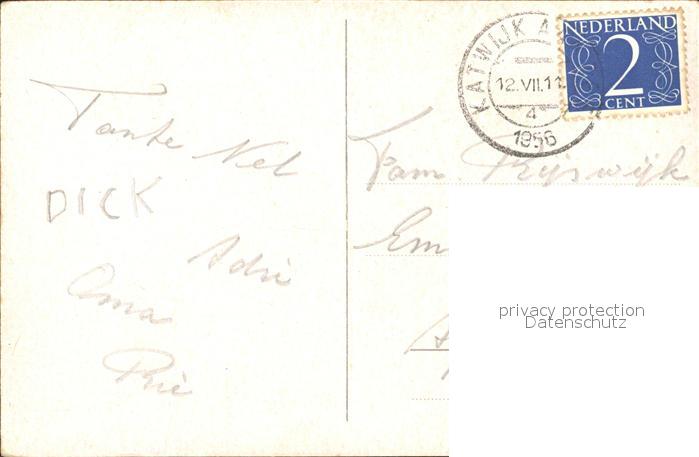 Tante Nel
DICK
Adri
Oma
Riè
KATWIJK A
12.VII.11
4
1956
NEDERLAND
2
CENT
Fam Rijswijk
Em
privacy protection
Datenschutz